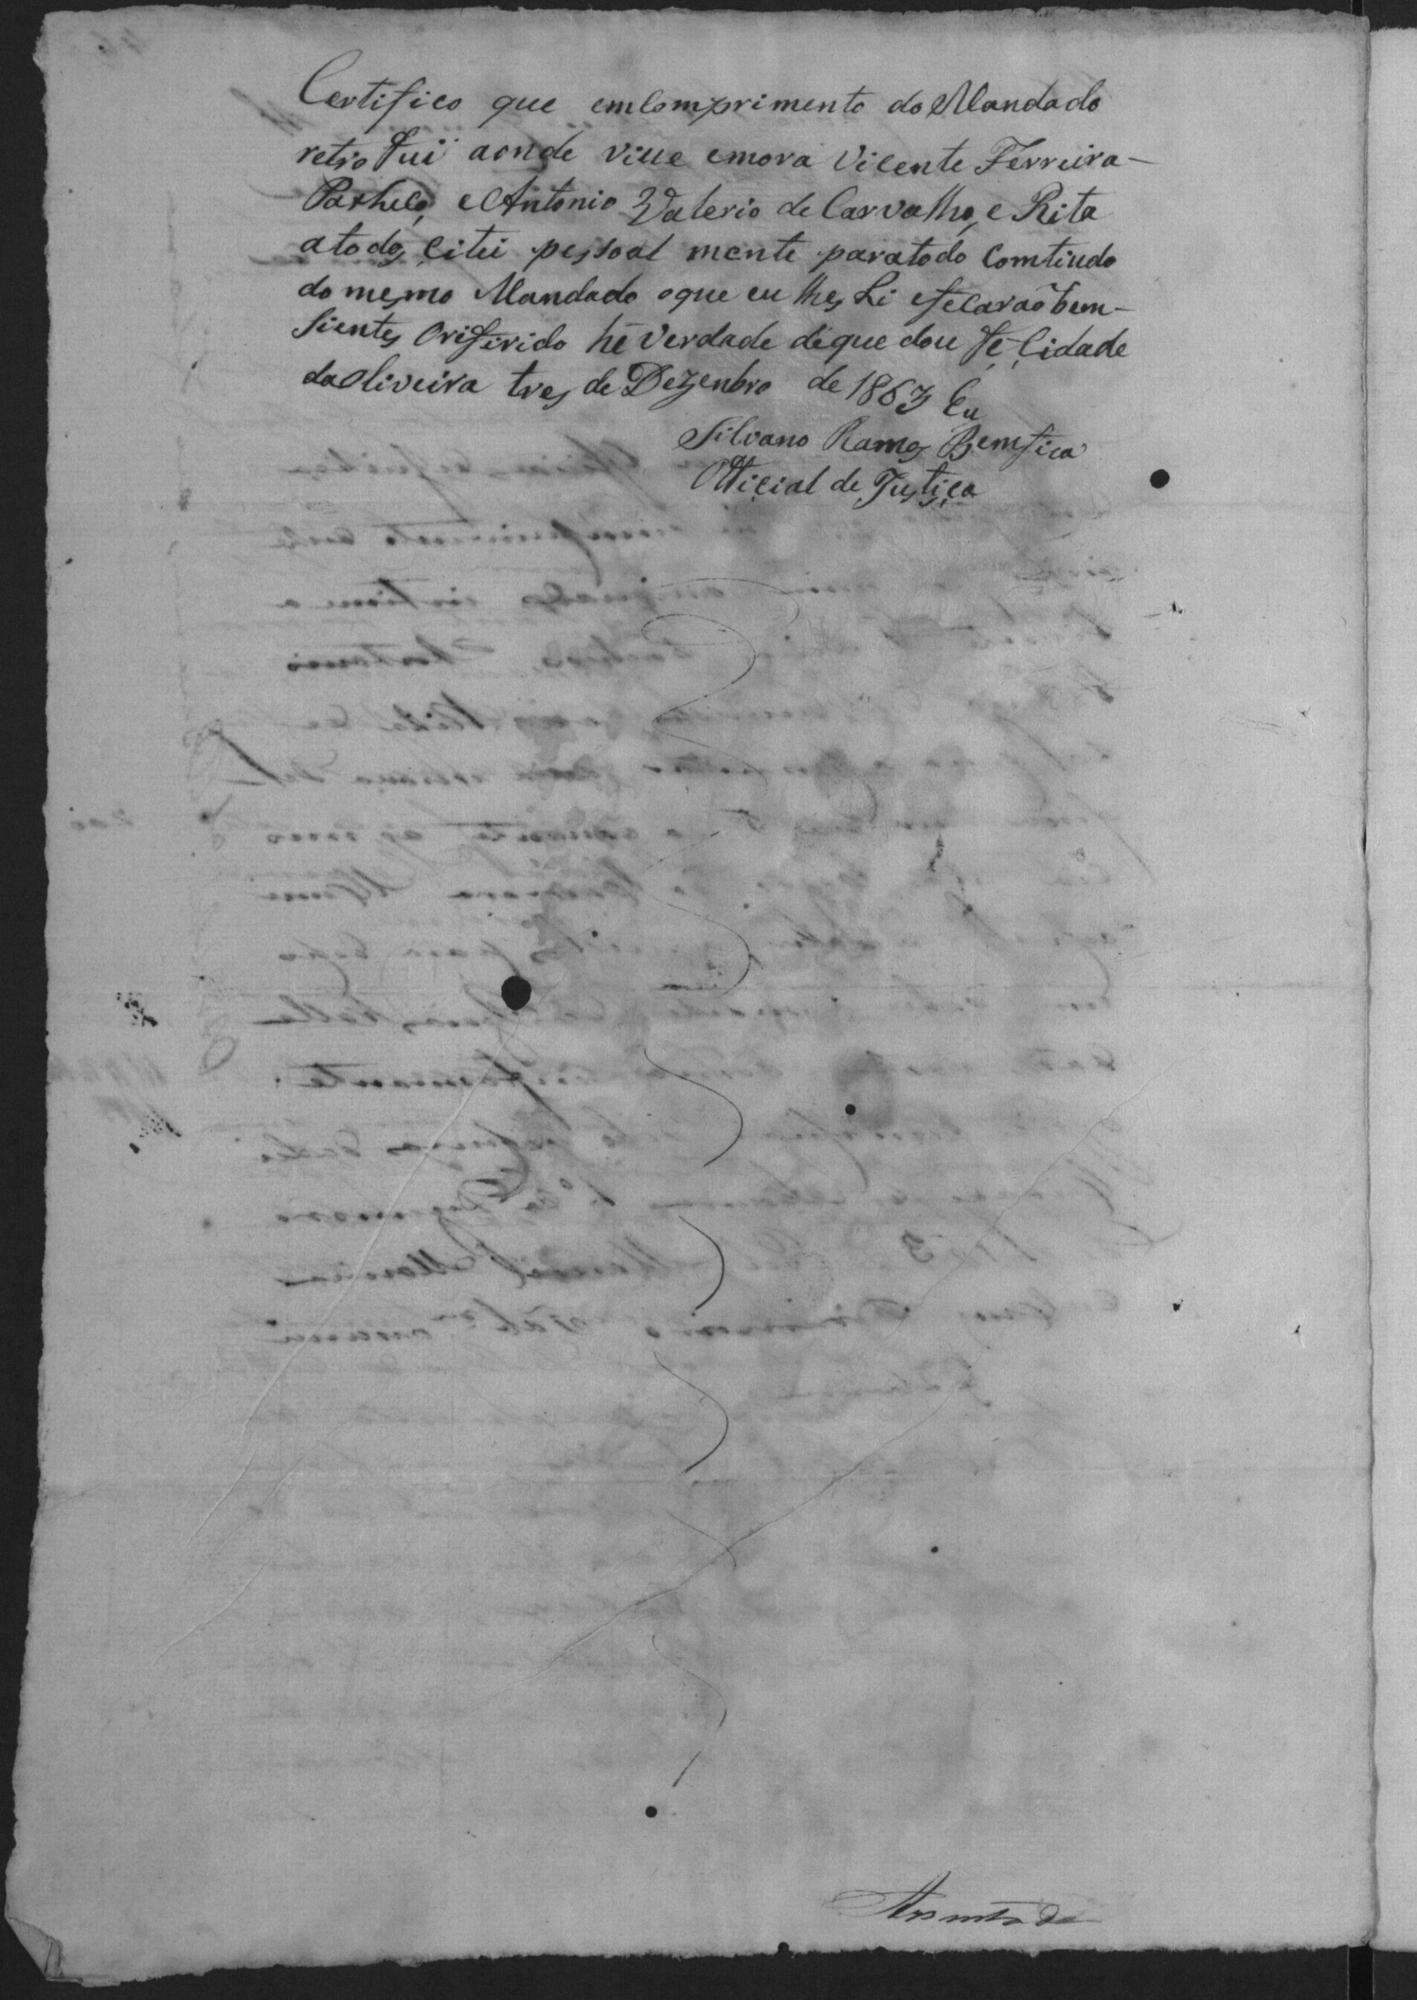 Certifico que emComprimento do Mandado
retro Fui aonde vive emora Vicente Ferreira—
Pacheco, e Antonio Valerio de Carvalho, e Rita
atodos Citei pessoal mente paratodo Comtiudo
do mesmo Mandado oque eu lhes Li efecarão bem-
Sientes Oriferido hé verdade deque dou Fé, Cidade
da Oliveira tres de Dezenbro de 1863 Eu
Silvano Ramos Bemfica
Oficial de Justiça